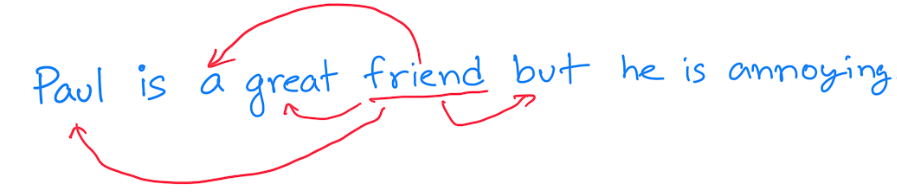 Paul is a great friend but he is annoying